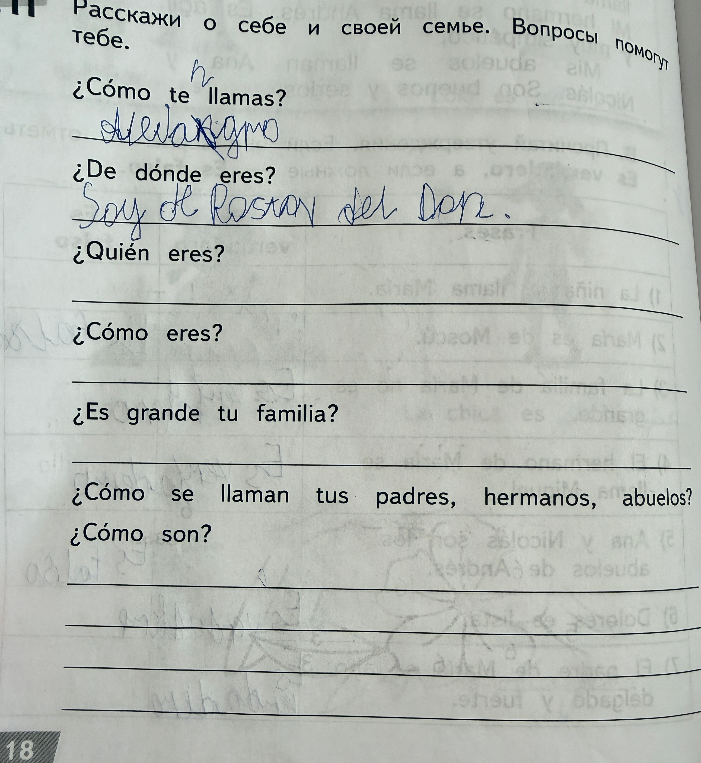 11
Расскажи о себе и своей семье. Вопросы помогут
тебе.
¿Cómo te llamas?
¿De dónde eres?
Soy de Rostov del Don.
¿Quién eres?
¿Cómo eres?
¿Es grande tu familia?
¿Cómo se llaman tus padres, hermanos, abuelos?
¿Cómo son?
18